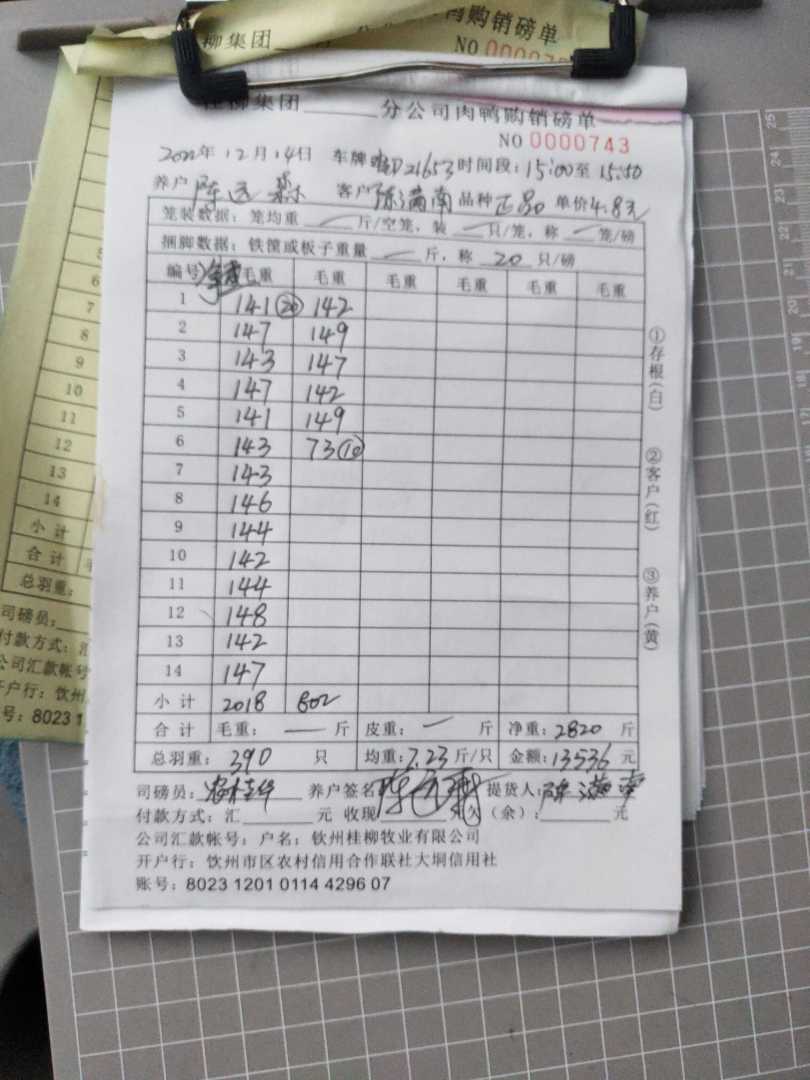 柳集团 购销磅单
NO 00007
桂柳集团 分公司肉鸭购销磅单
NO 0000743
2022年12月14日 车牌 D21653 时间段:15:00至 15:50
养户 陈远 客户 陈满南 品种 正品 单价4.8元
笼装数据:笼均重 斤/空笼,装 只/笼,称 笼/磅
捆脚数据:铁筐或板子重量 斤,称 20 只/磅
编号 净重 毛重 毛重 毛重 毛重 毛重 毛重
1 141 ⑳ 142
2 147 149
3 143 147
4 147 142
5 141 149
6 143 73 ⑩
7 143
8 146
9 144
10 142
11 144
12 148
13 142
14 147
小计 2018 802
合计 毛重: — 斤 皮重: — 斤 净重:2820 斤
总羽重:390 只 均重:7.23斤/只 金额:13536元
司磅员: 养户签名 提货人:陈满南
付款方式:汇 元 收现 元欠(余): 元
公司汇款帐号:户名:钦州桂柳牧业有限公司
开户行:钦州市区农村信用合作联社大垌信用社
账号:8023 1201 0114 4296 07
①存根(白)
②客户(红)
③养户(黄)
6
7
8
9
10
11
12
13
14
小计
合计
总羽重:
司磅员:
付款方式:汇
公司汇款帐号
开户行:钦州
号:8023 1